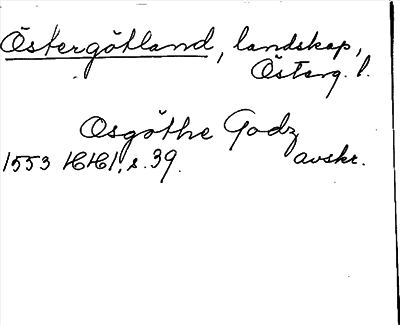 Östergötland, landskap,
Österg. l.
Osgöthe Godz
1553 HH1, s. 39. avskr.